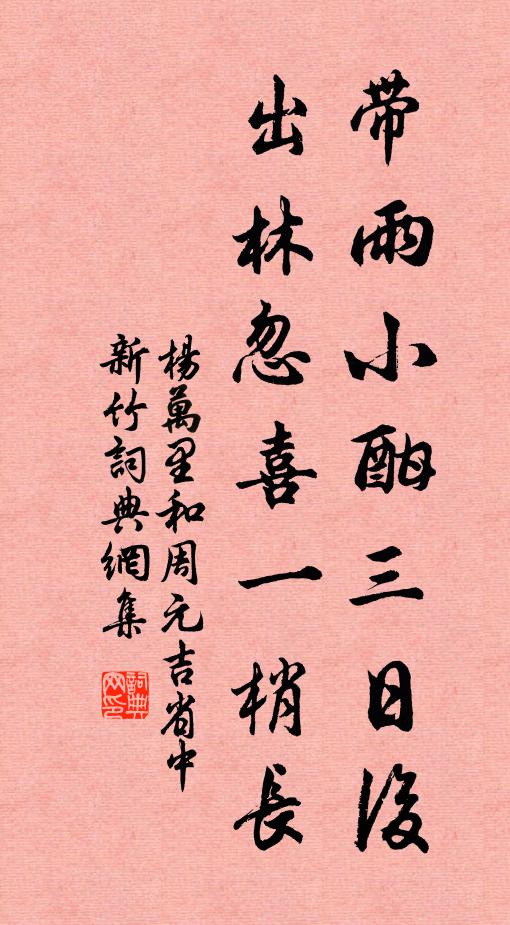 帶雨小酣三日後
出林忽喜一梢長
楊萬里和周元吉省中
新竹詞典網集
詞典网印